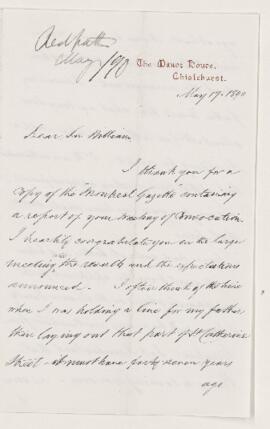 Redpath
May /90
The Manor House,
Chislehurst.
May 19. 1890
Dear Sir William,
I thank you for a
copy of the "Montreal Gazette" containing
a report of your meeting of Convocation.
I heartily congratulate you on the large
meeting, the results and the
announced. I often think of the time
when I was holding a line for my father
then laying out that part of St Catherine
Street - it must have forty seven years
ago